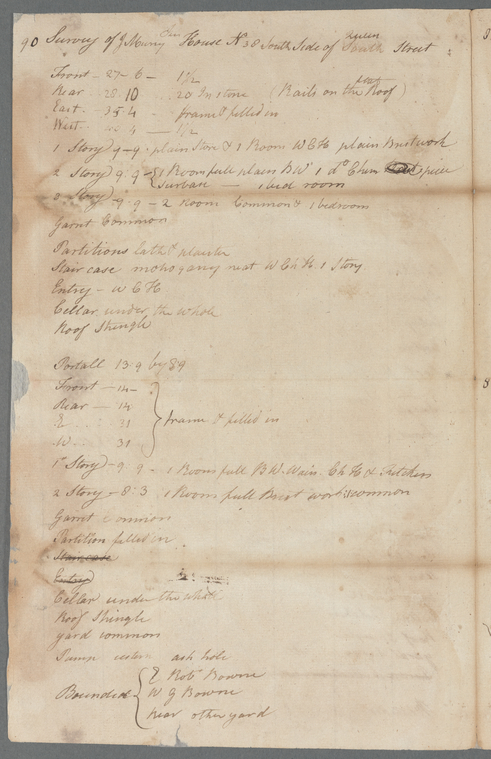 90 Survey of J Murray Junr House N 38 South Side of Queen Street
Front - 27 - 6 - 1 1/2
Rear - 28. 10 20 In stone (Rails on the Roof)
East. 35.4 - frame & filled in
West. 4 - 1/2
1 Story 9-9 - plain Store & 1 Room W C H plain Brestwork
2 Story 9.9 - 1 Room full plain B W 1 do Chim piece
Surbase - 1 bed room
3 Story 9-9 - 2 Room Common & 1 bedroom
Garret Common
Partitions lath & plaister
Stair case mohogany neat W Ch H. 1 Story
Entry - W C H
Cellar under the whole
Roof Shingle
Portall 13.9 by 8.9
Front - 14 -
Rear - 14
E ... 31
W ... 31
frame & filled in
1st Story - 9.9 - 1 Room full B W. Wain. Ch H & Kitchen
2 Story - 8.3 1 Room full Brest work common
Garret common
Partition filled in
Staircase
Entry
Cellar under the whole
Roof Shingle
yard common
Pump cistern ash hole
Bounded
E Robt Bowne
W G Bowne
Rear other yard